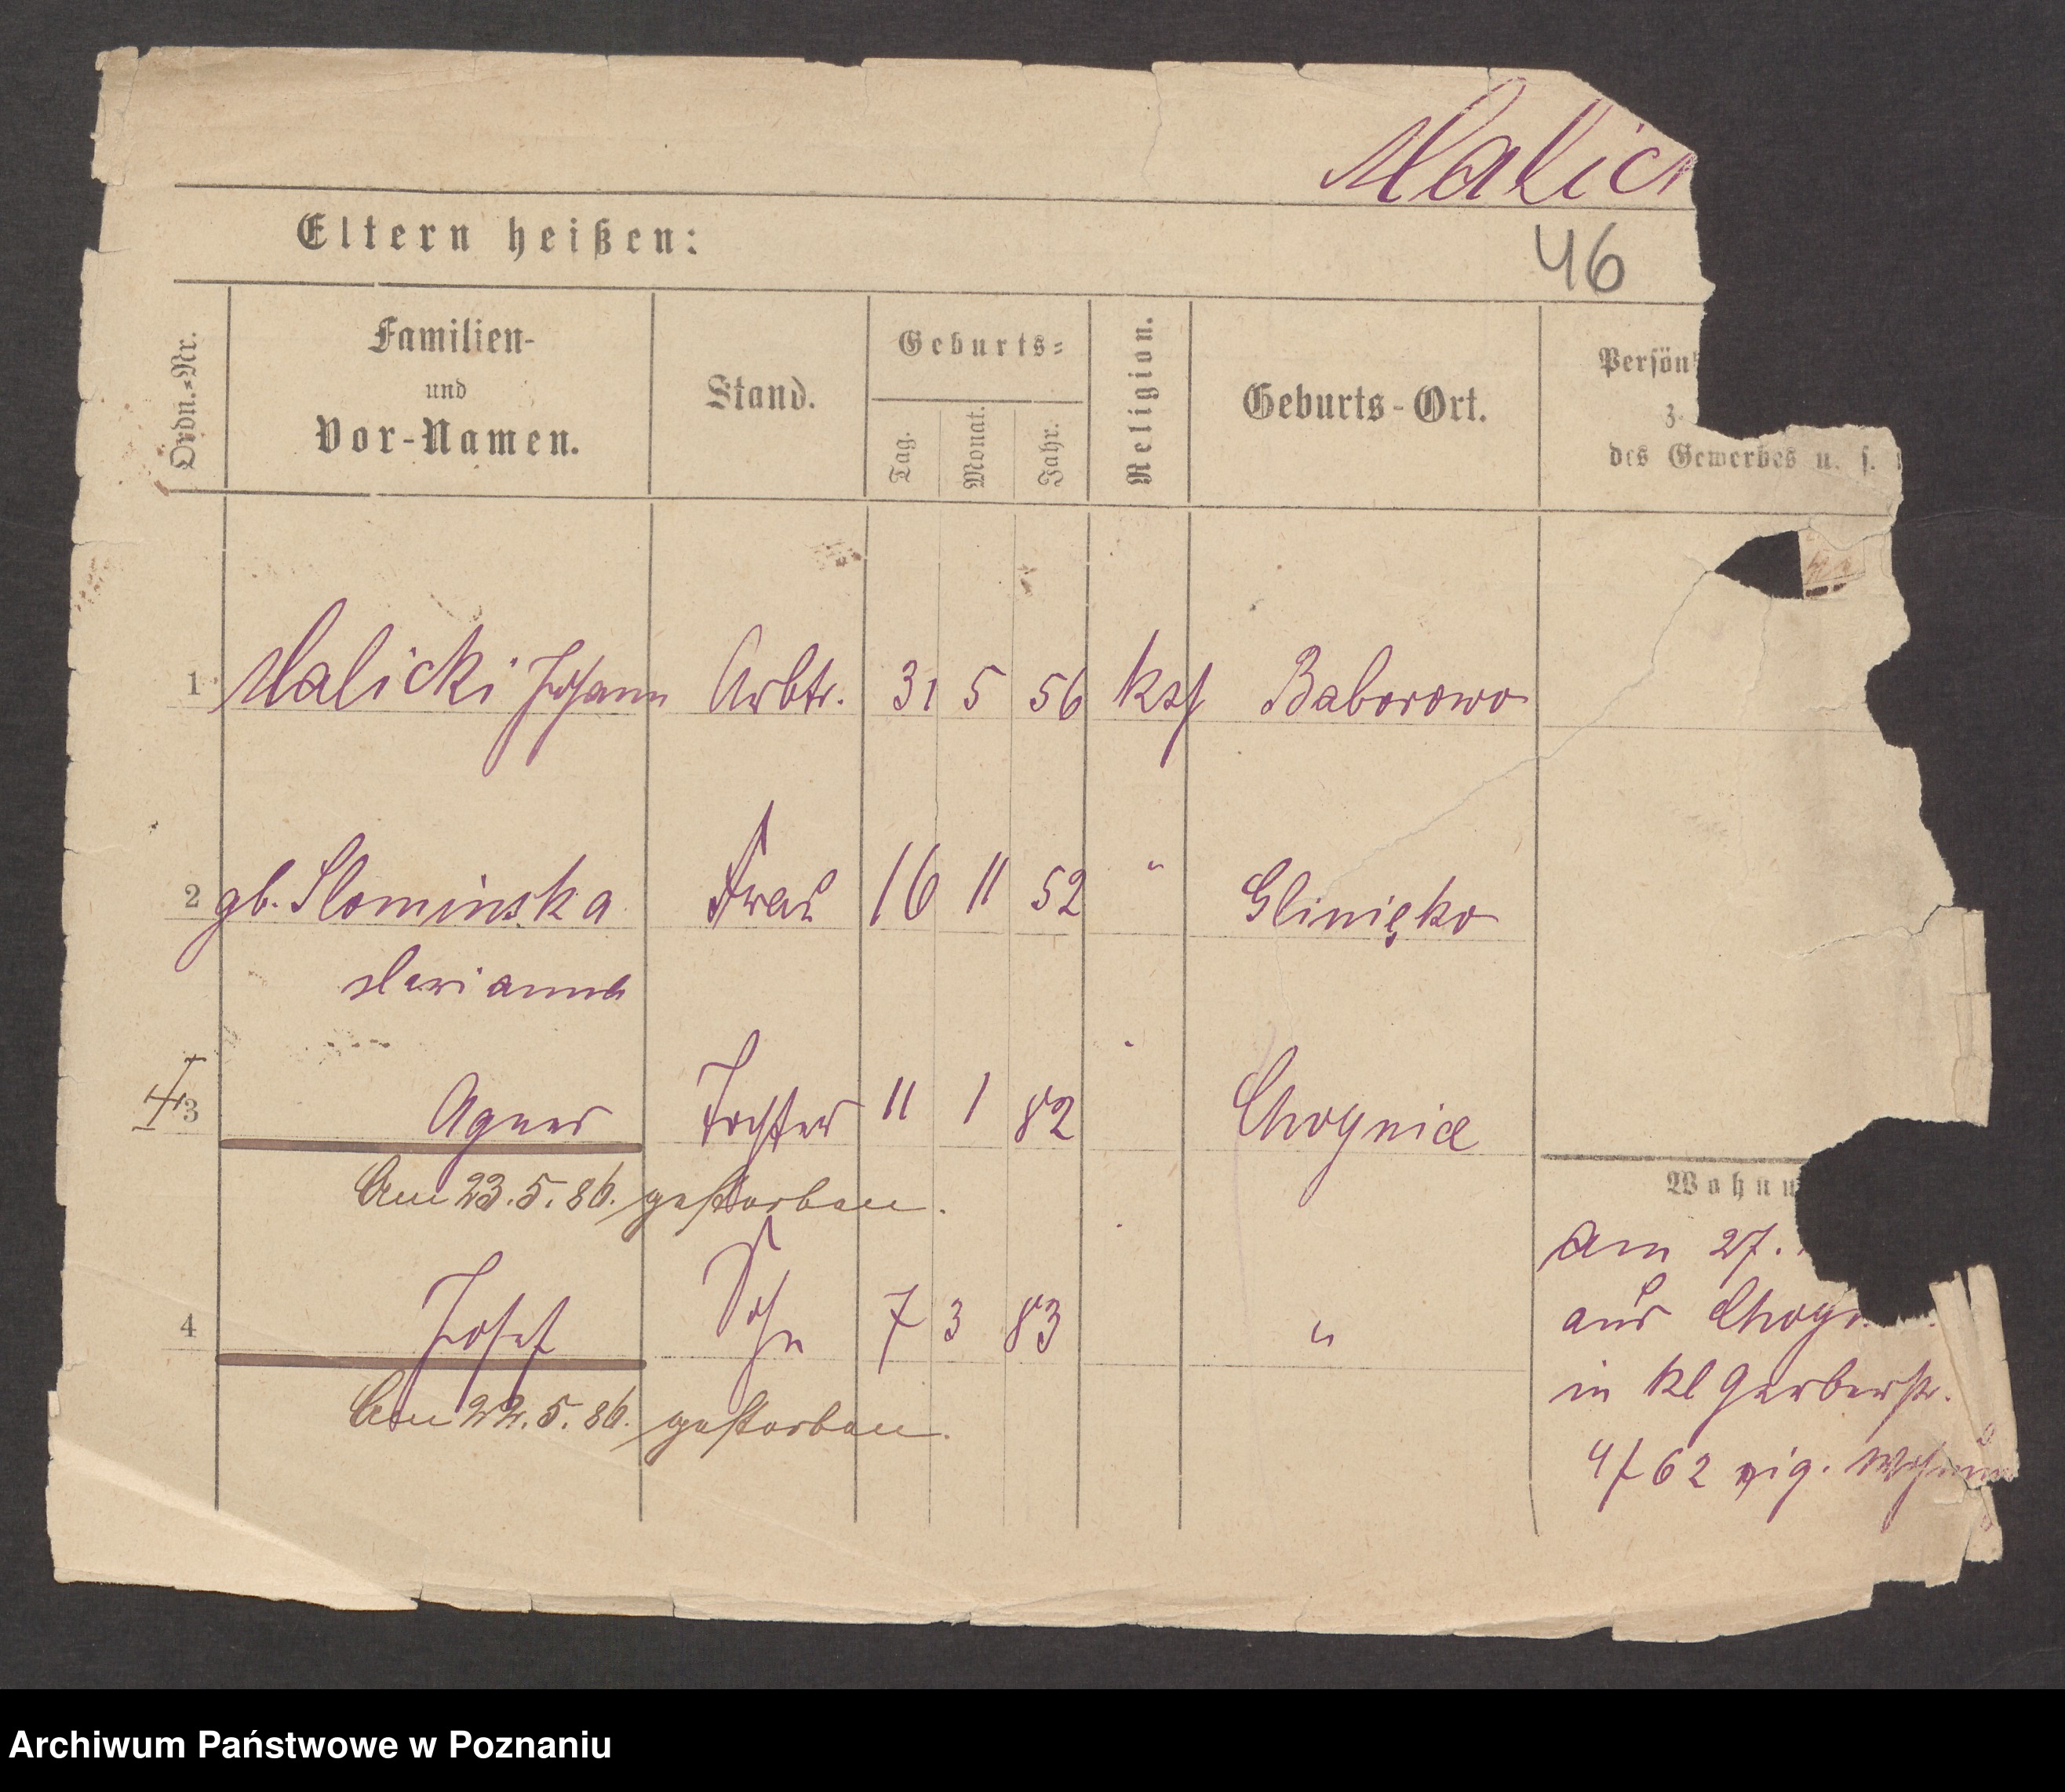 Malick
Eltern heißen:
46
Ordn.=Nr.
Familien-
und
Vor-Namen.
Stand.
Geburts=
Tag.
Monat.
Jahr.
Religion.
Geburts-Ort.
Persön
z.
des Gewerbes u. s.
1 Malicki Johann Arbtr. 31 5 56 kth Baborowo
2 gb. Slominska Frau 16 11 52 " Glinięko
Marianna
3 Agnes Tochter 11 1 82 Choynice
Am 23.5.86. gestorben.
4 Josef Sohn 7 3 83 "
Am 22.5.86. gestorben.
Wohnu
Am 27.
aus Choyn
in kl Gerberstr.
4/62 eig. Wohnu
Archiwum Państwowe w Poznaniu